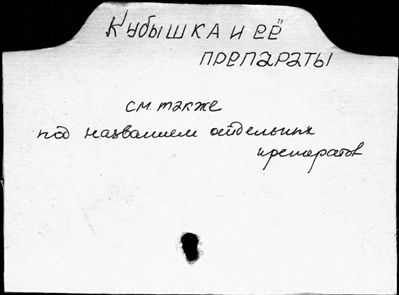 Кубышка и её
препараты
см. также
под названием отдельных
препаратов